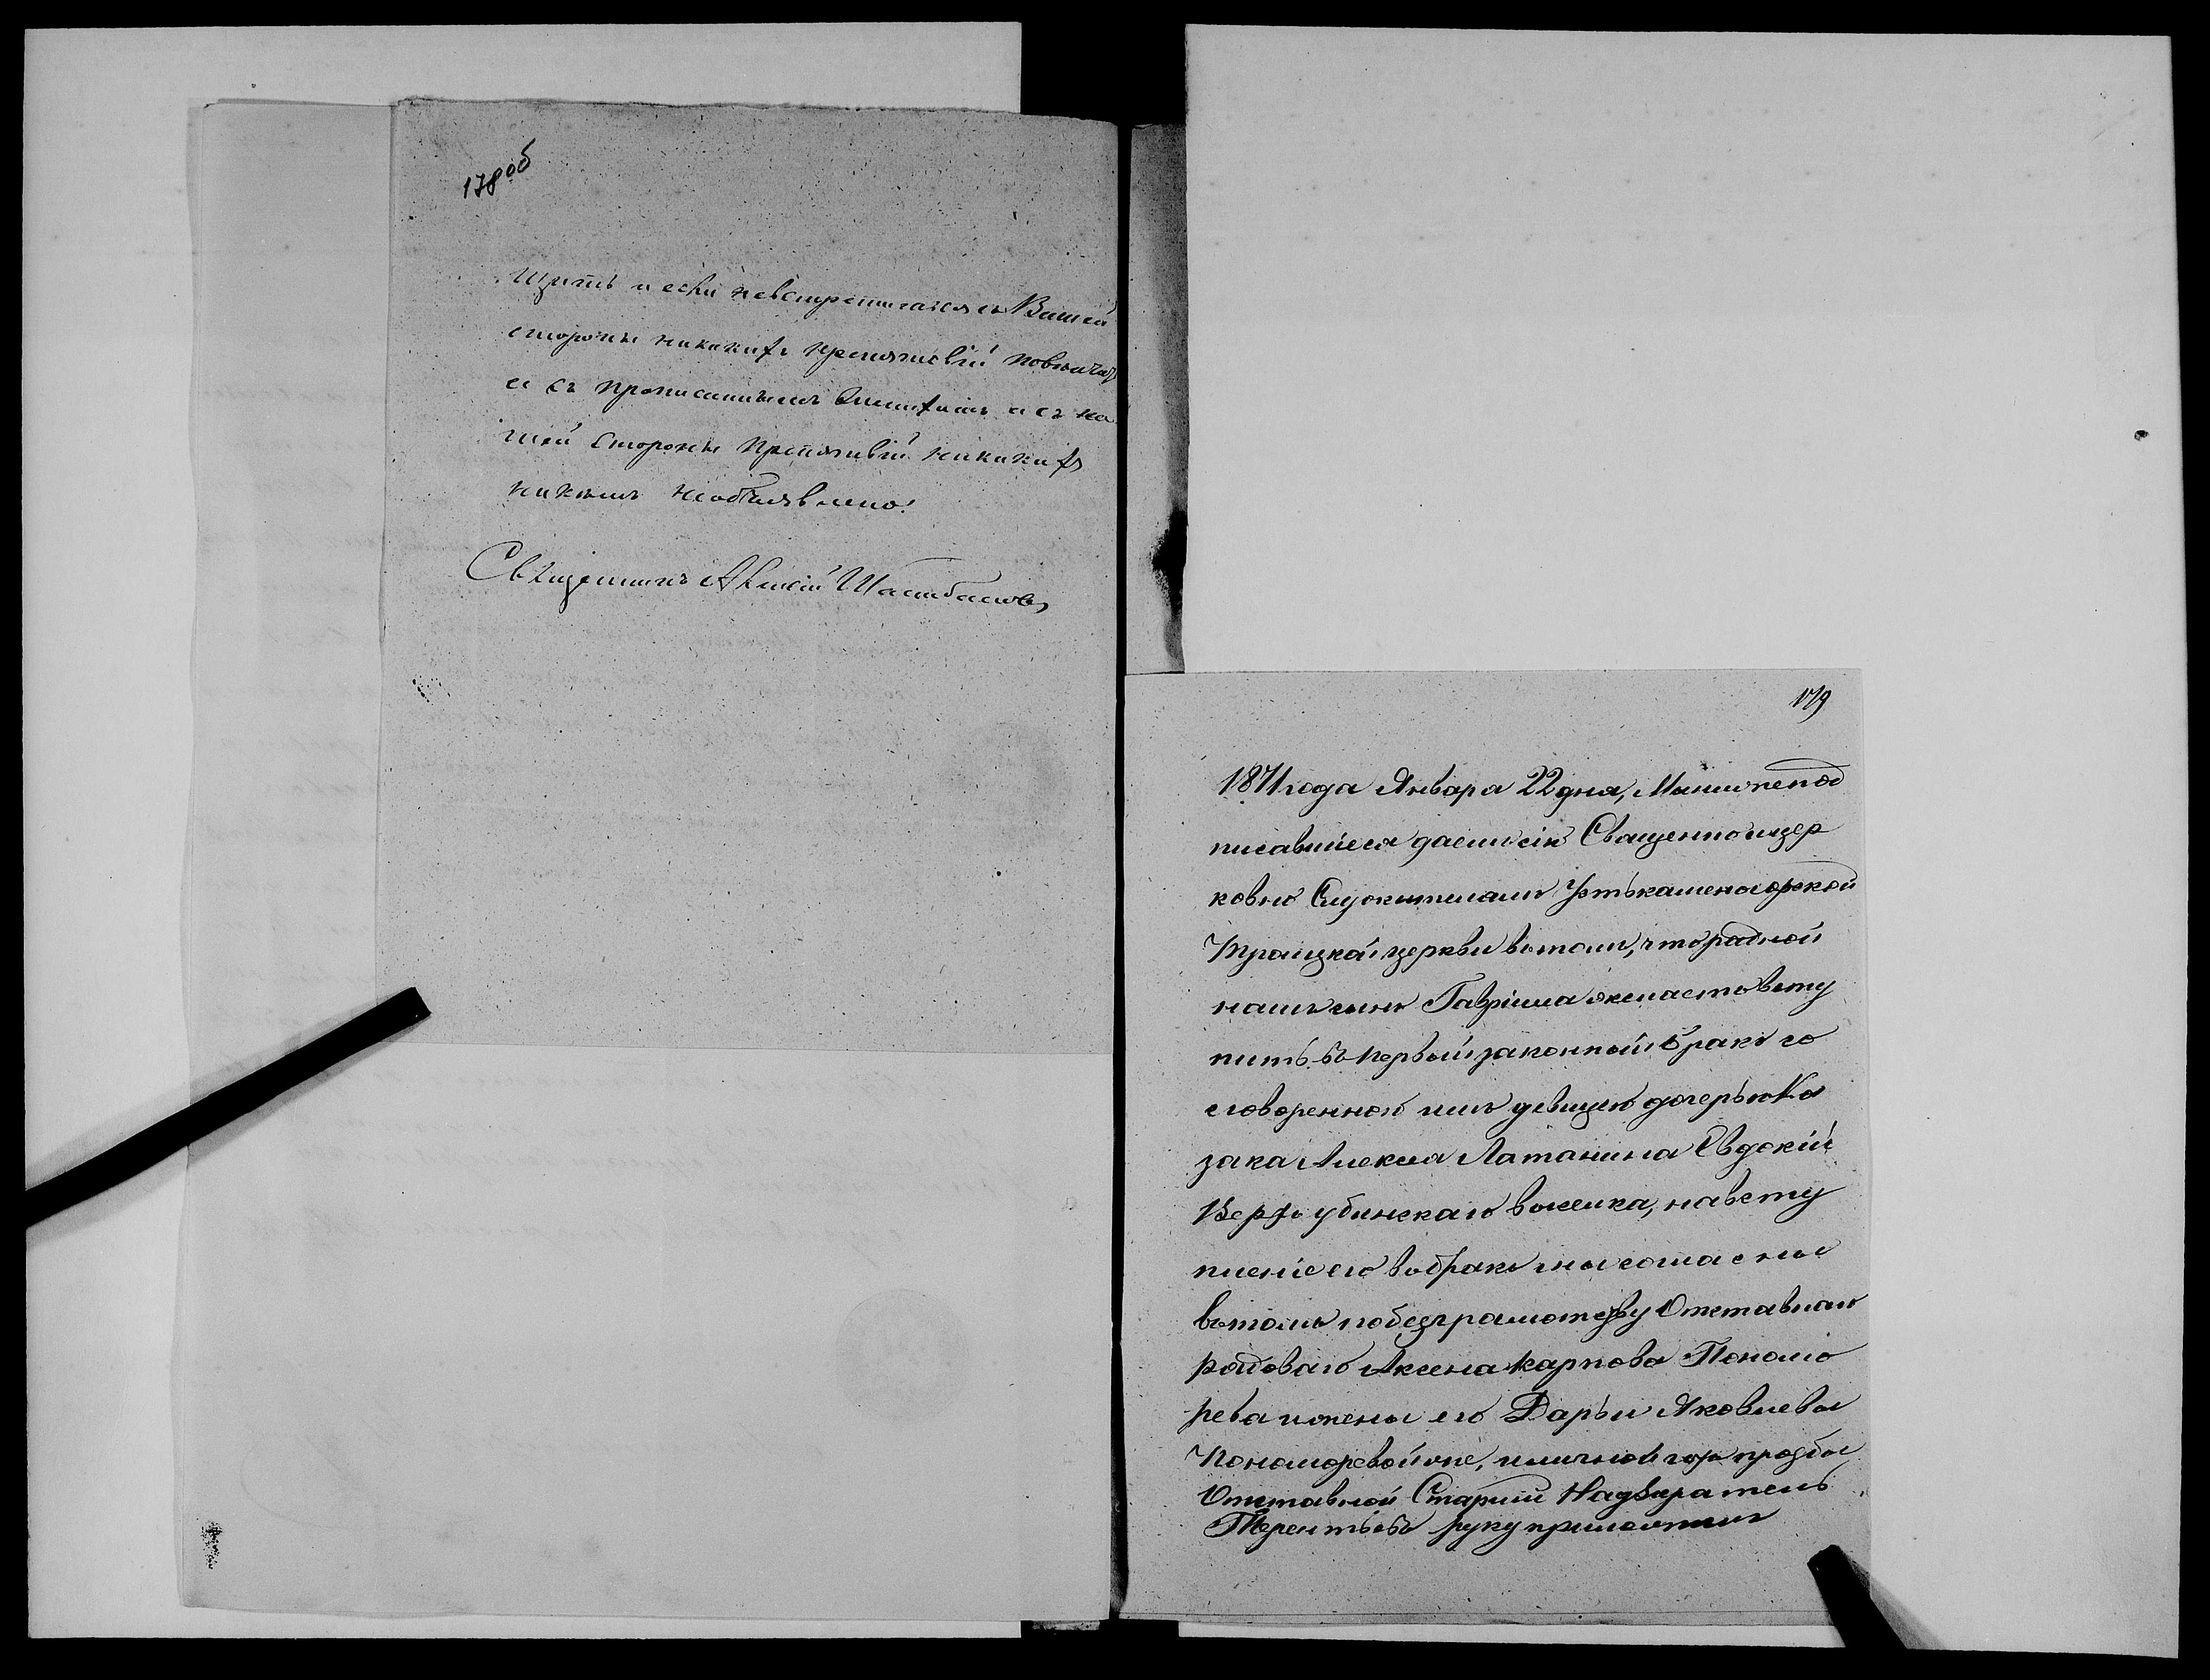 178 об
щуютъ и если невстретится съ Вашей
стороны никакихъ препятствій повенчать
и съ прописаннымъ женихомъ и съ на
шей стороны препятствій никакихъ
никемъ необъявлено.
Священникъ Алексій
179
1871 года Января 22 дня, Мы нижепод
писавшіеся даемъ сію Священно и цер
ковно Служителямъ Устькаменогорской
Троицкой церкви въ томъ, что родной
нашъ сынъ Гавріилъ желаетъ всту
пить въ первый законный бракъ со
сговоренной имъ девицею дочерью Ка
зака Алексея Латанина Евдокіи
Верхъ убинскаго выселка, на всту
пленіе его въ бракъ мы согласны
въ томъ по безграмотству Отставнаго
рядоваго Аксена Карпова Пономо
рева и жены его Дарьи Яковлевы
Пономоревой же, и личной ихъ прозбы
Отставной Старшій Надзиратель
Терентьевъ руку приложилъ